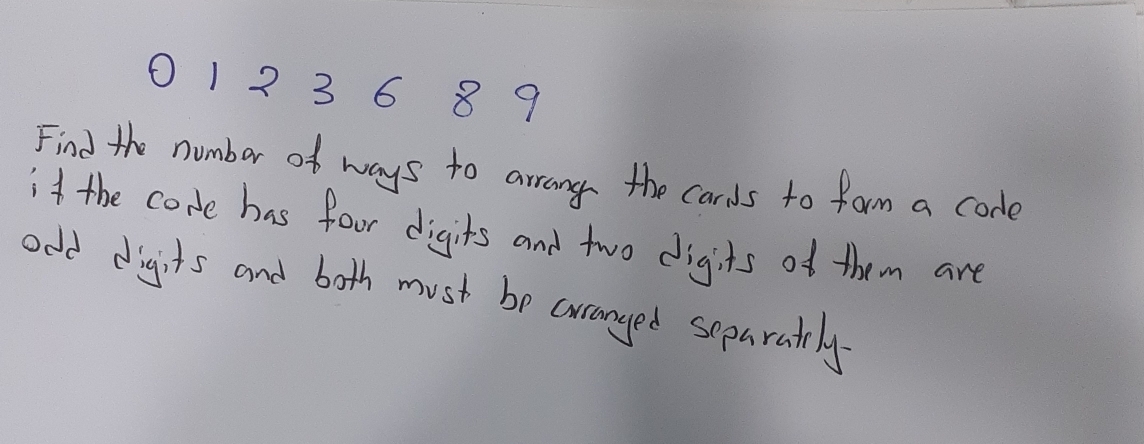 0 1 2 3 6 8 9
Find the number of ways to arrange the cards to form a code
if the code has four digits and two digits of them are
odd digits and both must be arranged separately.